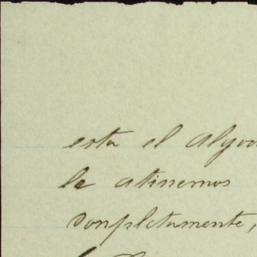 esta el algod
le atinemos
completamente,